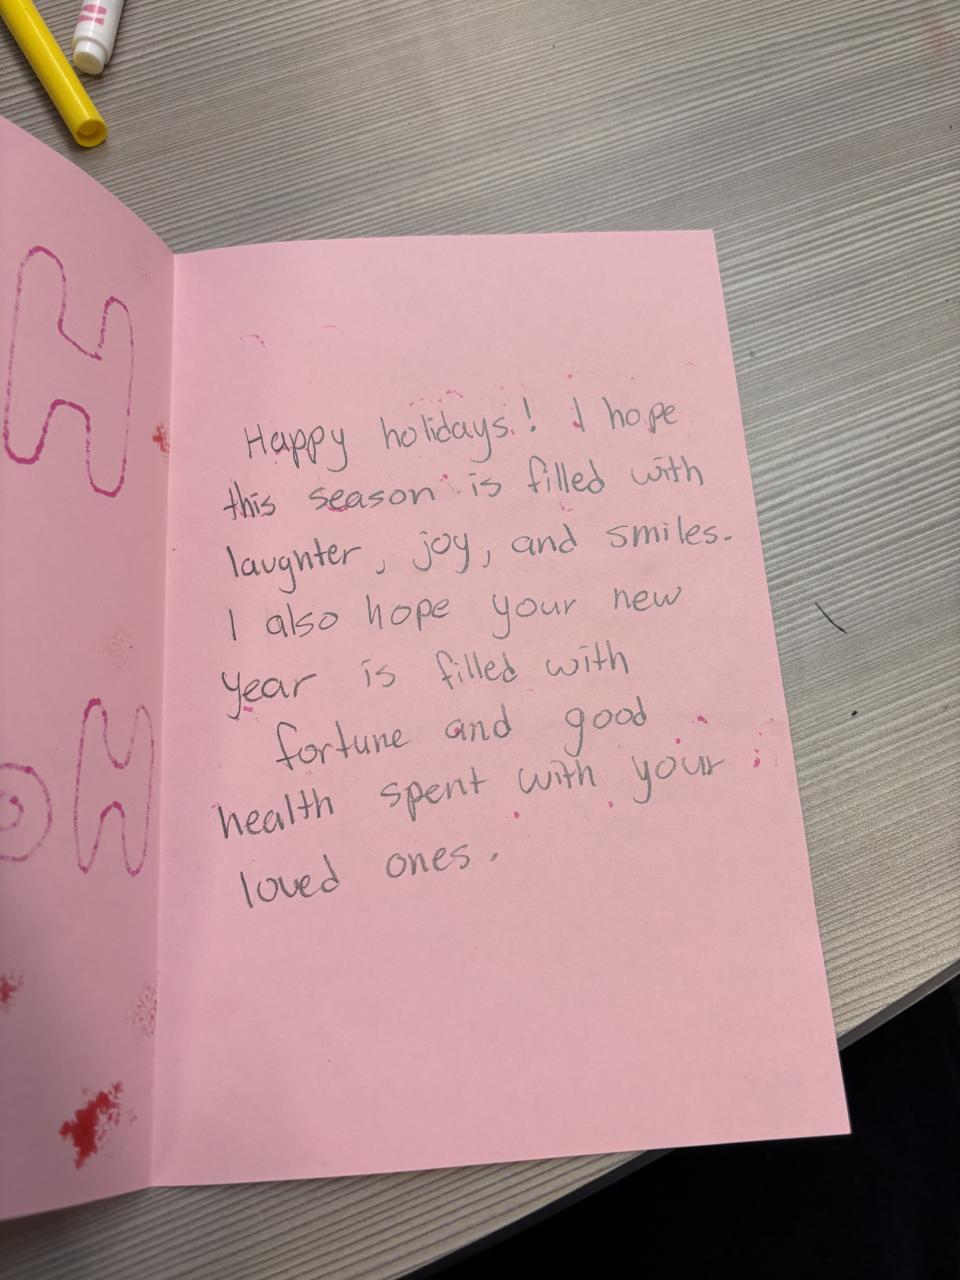 Happy holidays! I hope
this season is filled with
laughter, joy, and smiles.
I also hope your new
year is filled with
fortune and good
health spent with your
loved ones.